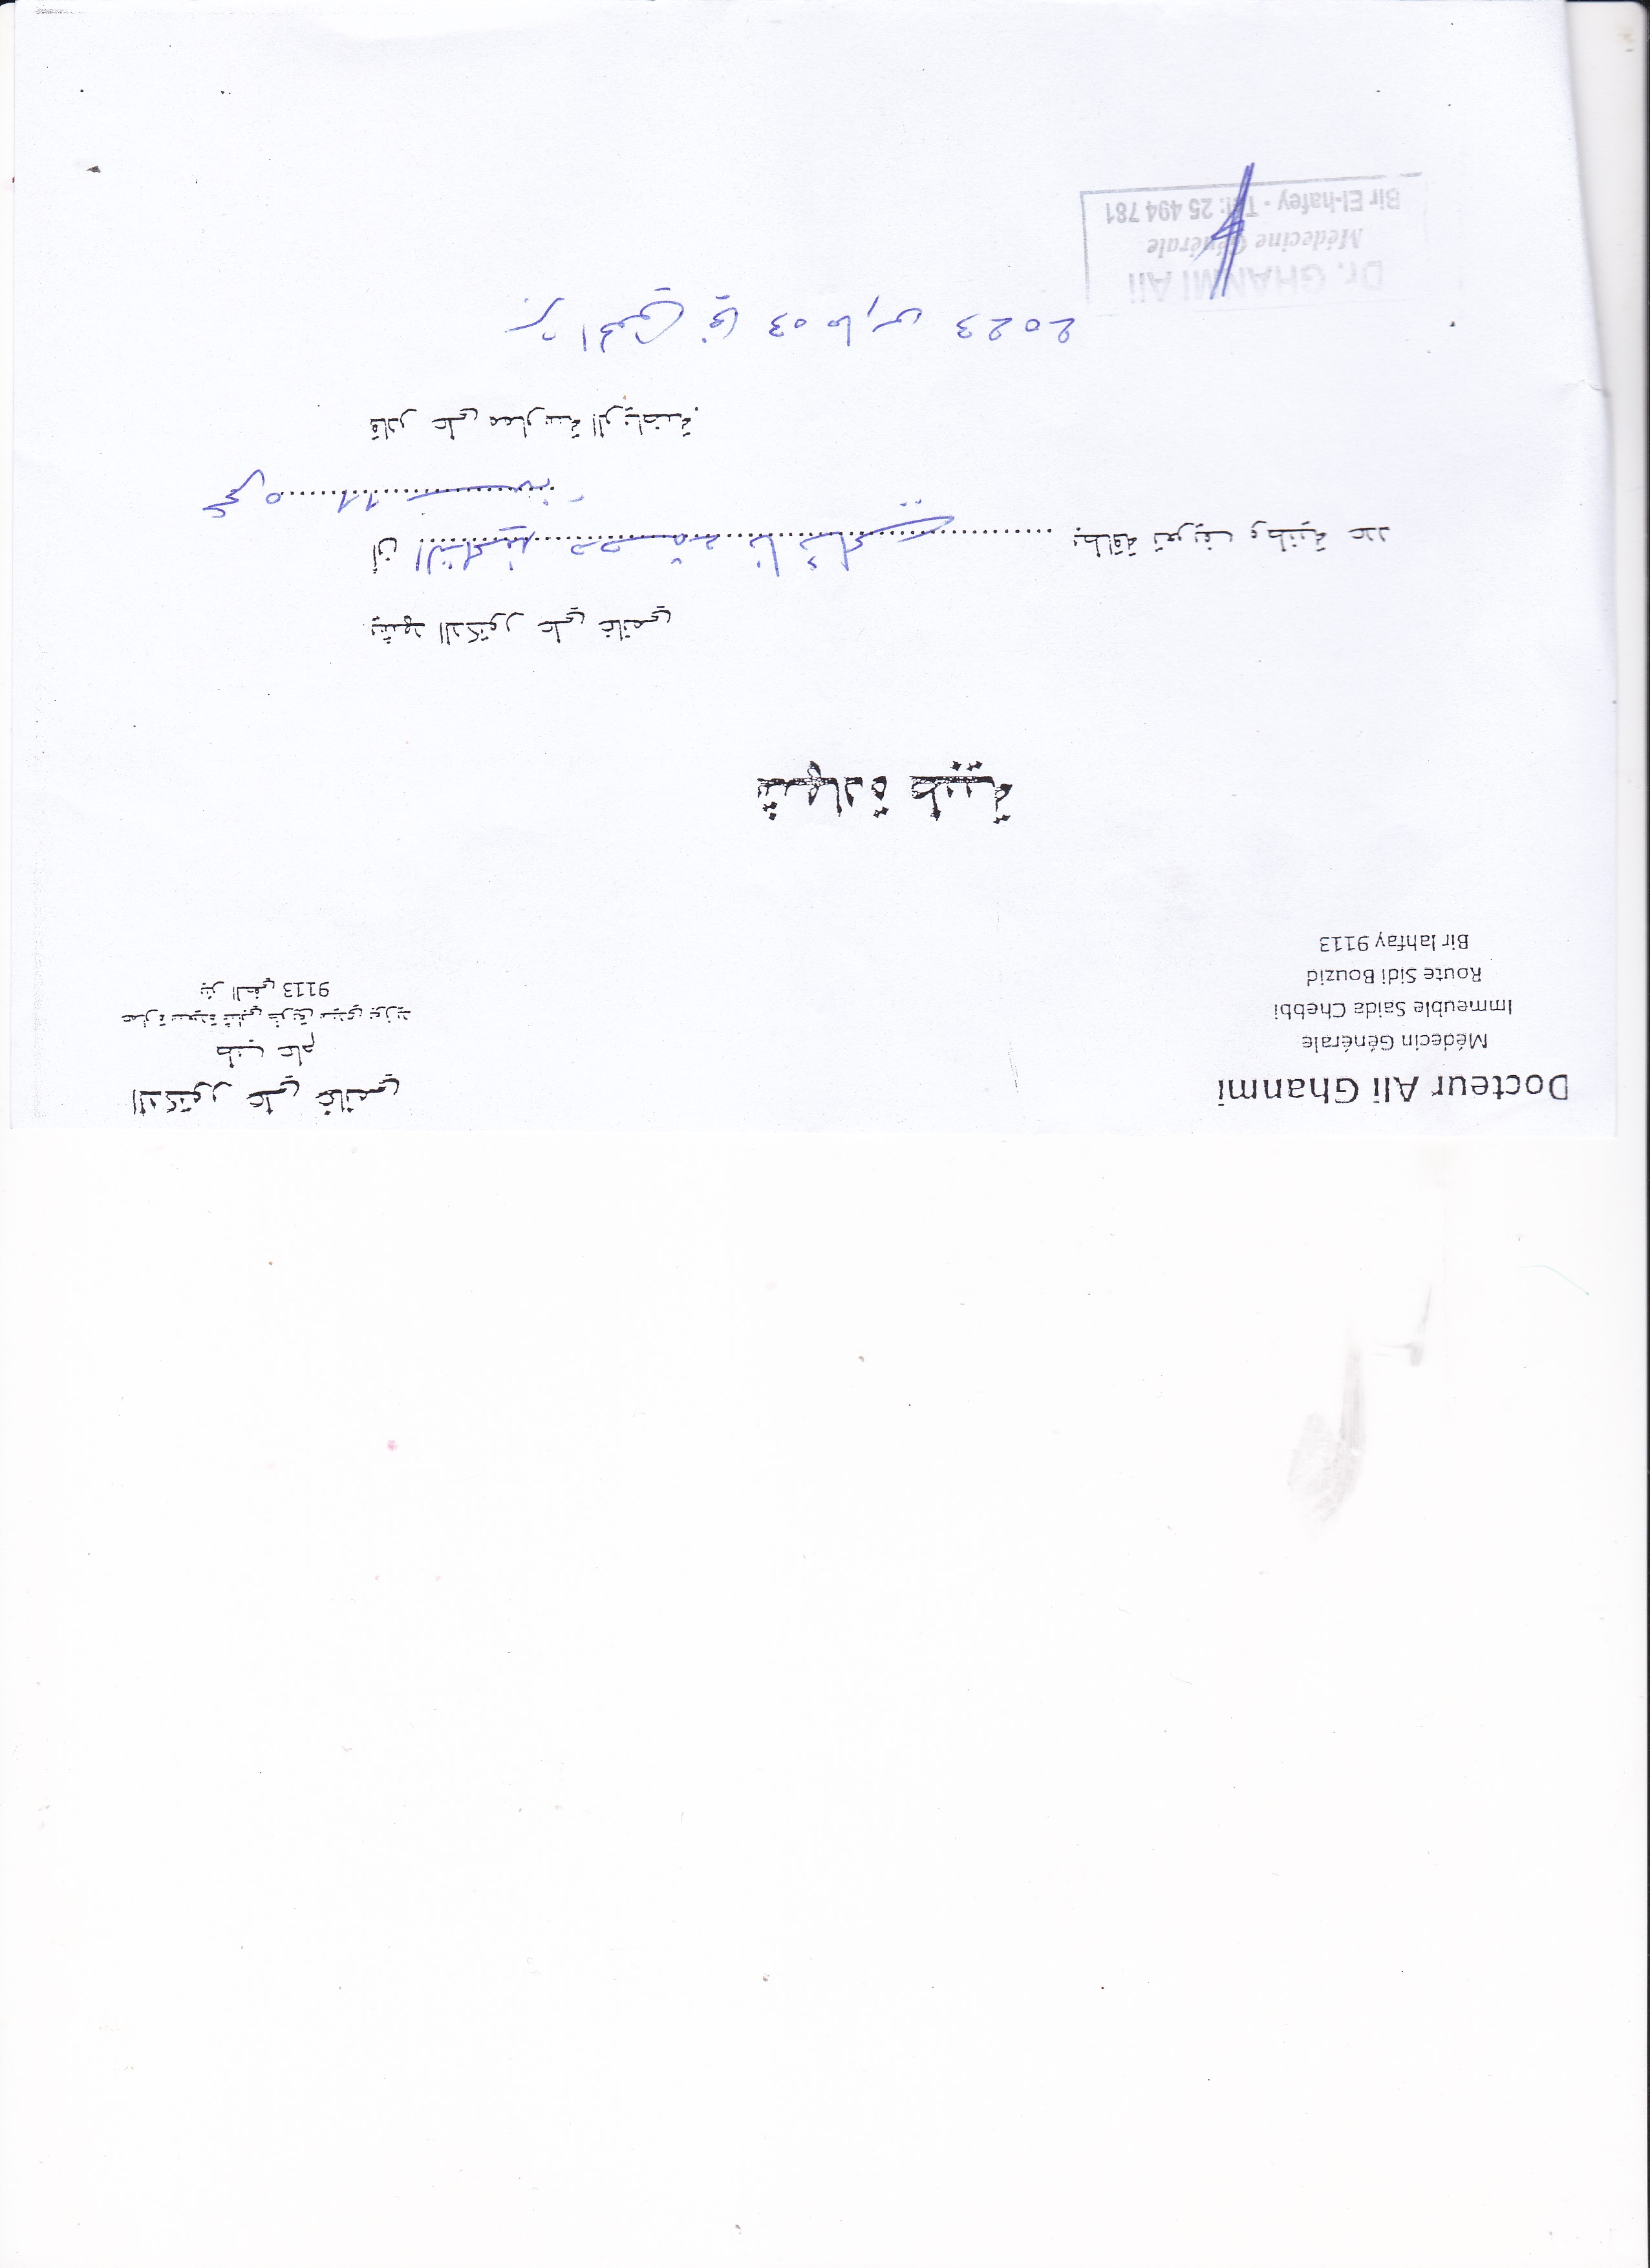 Docteur Ali Ghanmi
الدكتور علي غانمي
Médecin Générale
طب عام
Immeuble Saida Chebbi
عمارة سعيدة شابي طريق سيدي بوزيد
Route Sidi Bouzid
بئر الحفي 9113
Bir lahfay 9113
شهادة طبية
يشهد الدكتور علي غانمي
أن التلميذ بطاقة تعريف وطنية عدد
سنة 11
قادر على ممارسة الرياضة.
بئر الحفي في 03 مارس 2023
Dr. GHANMI Ali
Médecine Générale
Bir El-hafey - Tél: 25 494 781